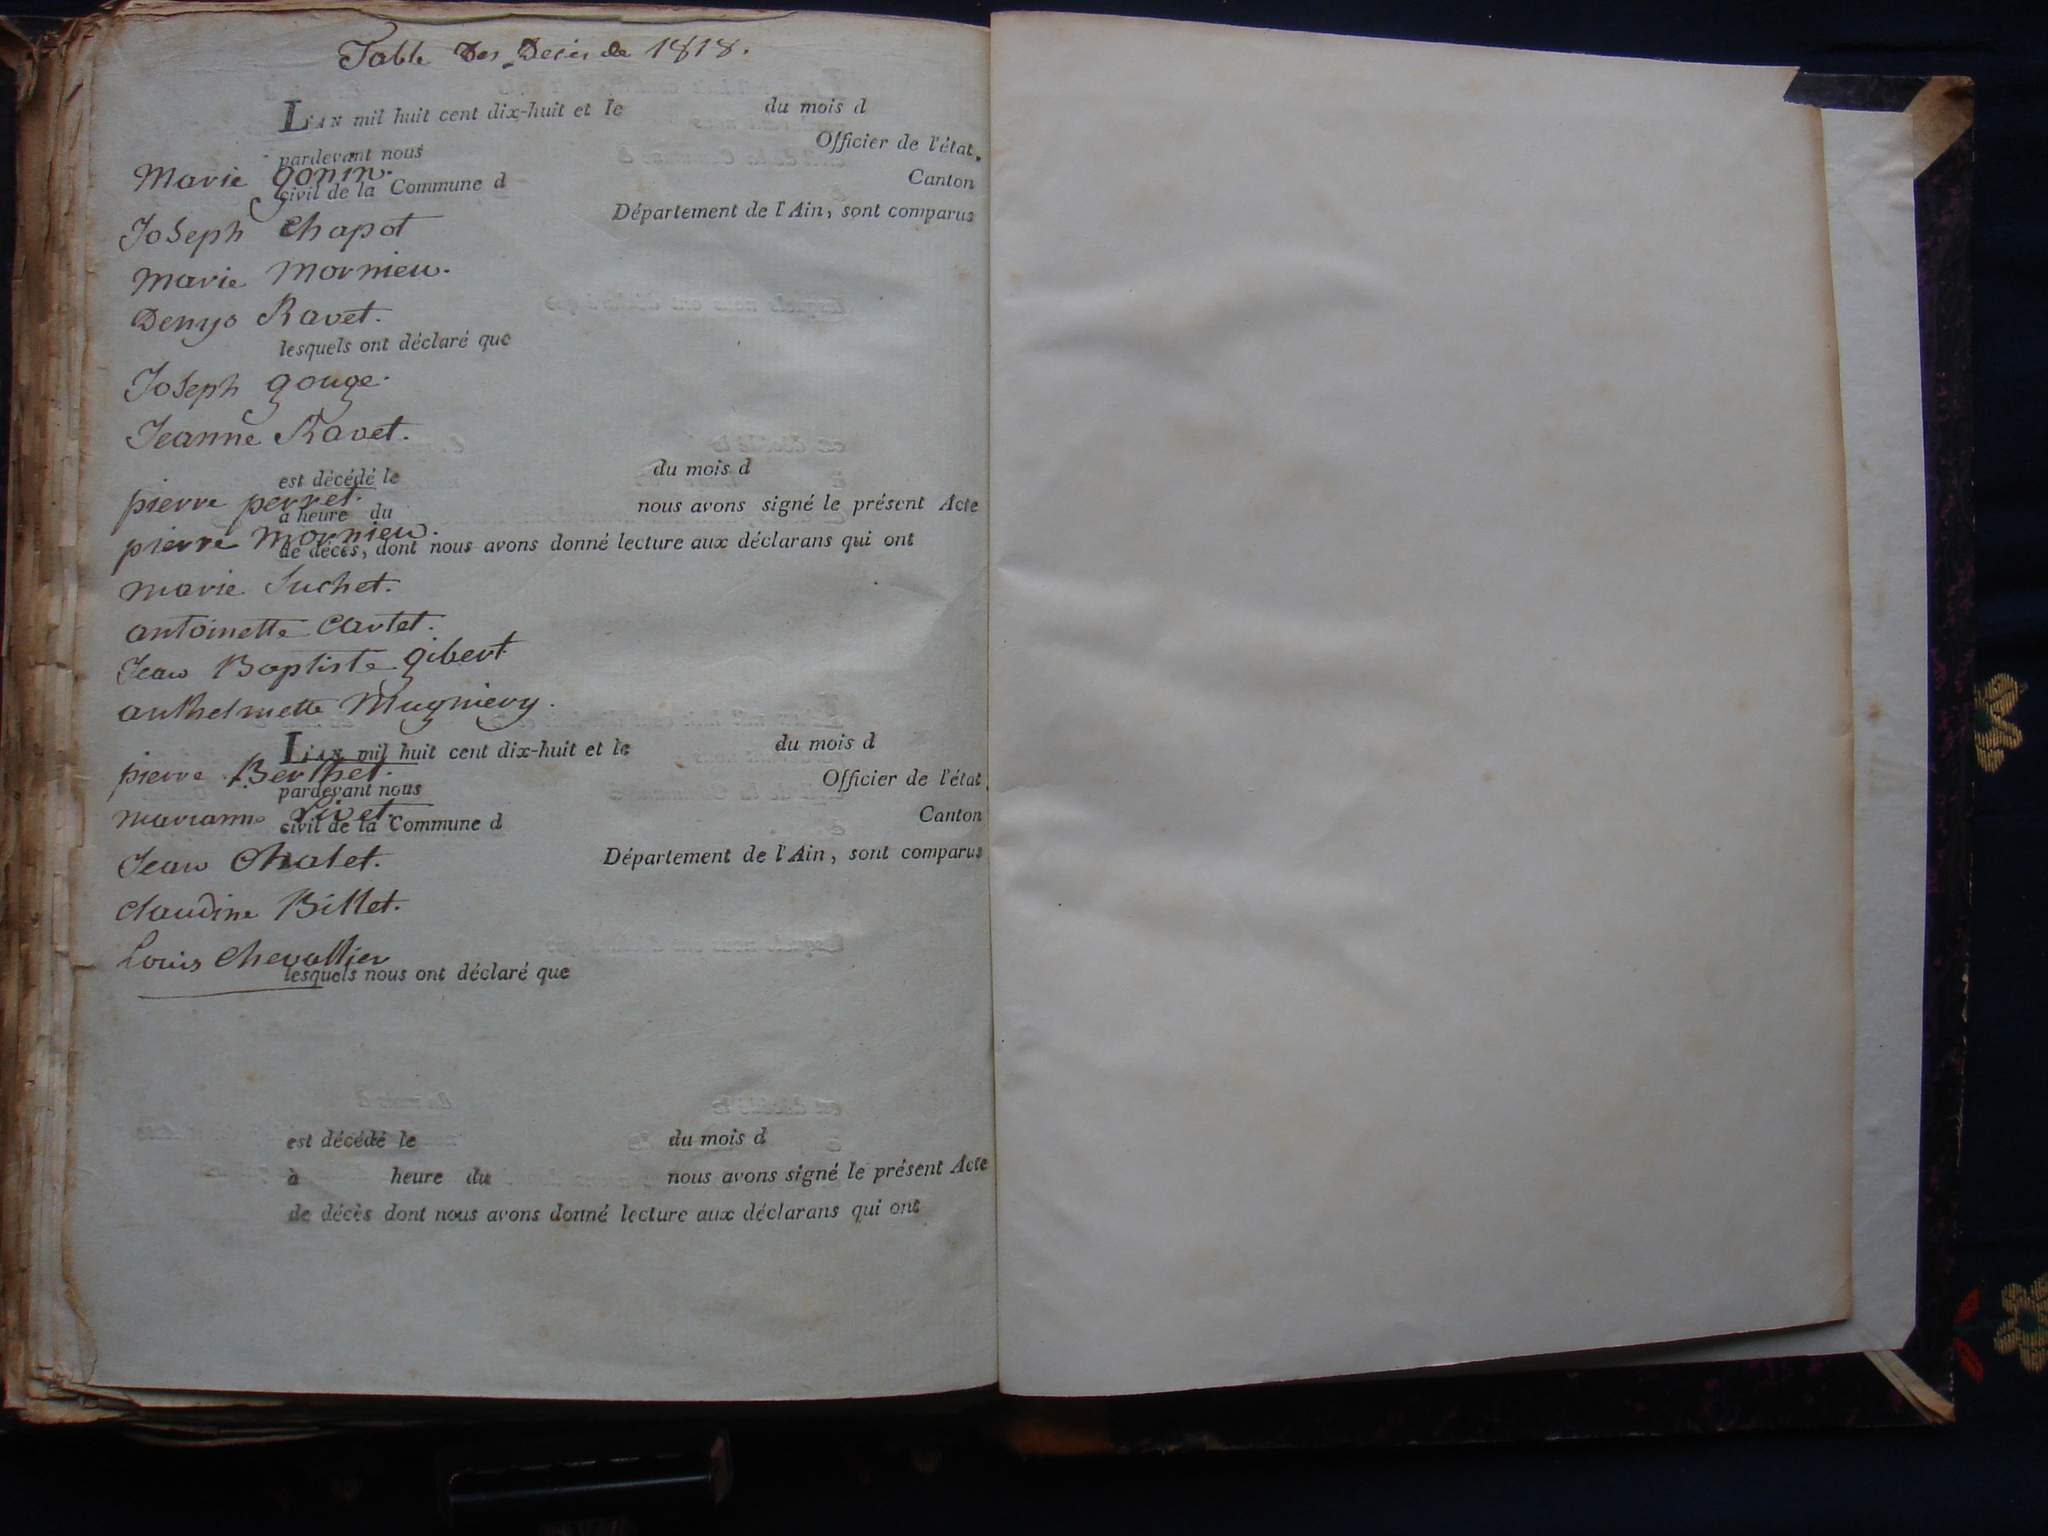 Table Des Décès de 1818.
L'AN mil huit cent dix-huit et le du mois d
pardevant nous Officier de l'état
Marie gonin.
civil de la Commune d Canton
Joseph Chapot Département de l'Ain, sont comparus
Marie Mornieu.
Denys Ravet.
lesquels ont déclaré que
Joseph gouge.
Jeanne Ravet.
est décédé le du mois d
pierre perret.
à heure du nous avons signé le présent Acte
pierre Mornieu.
de décès, dont nous avons donné lecture aux déclarans qui ont
marie Suchet.
antoinette Cartet.
Jean Baptiste gibert
anthelmette Mugniery.
L'AN mil huit cent dix-huit et le du mois d
pierre Berthet.
pardevant nous Officier de l'état
marianne Rivet.
civil de la Commune d Canton
Jean Chalet. Département de l'Ain, sont comparus
Claudine Billet.
Louis Chevallier
lesquels nous ont déclaré que
est décédé le du mois d
à heure du nous avons signé le présent Acte
de décès dont nous avons donné lecture aux déclarans qui ont